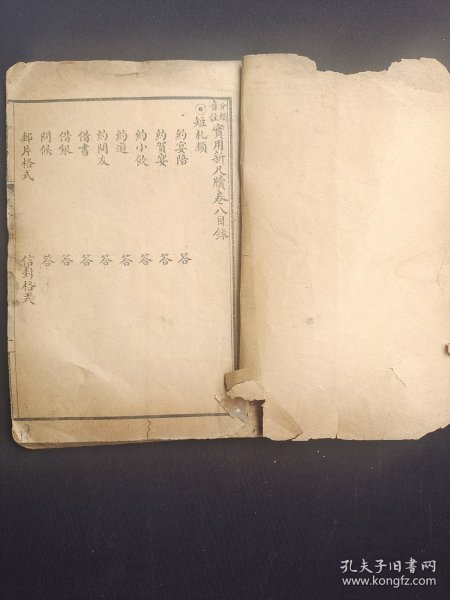 分類音註實用新尺牘卷八目錄
短札類
約宴陪 答
約賀宴 答
約小飲 答
約遊 答
約問友 答
借書 答
借銀 答
問候 答
郵片格式 信封格式
孔夫子旧书网
www.kongfz.com